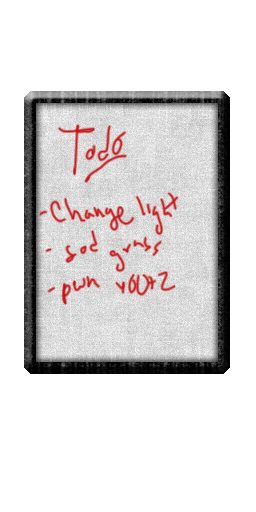 Todo
- Change light
- sod grass
- pwn